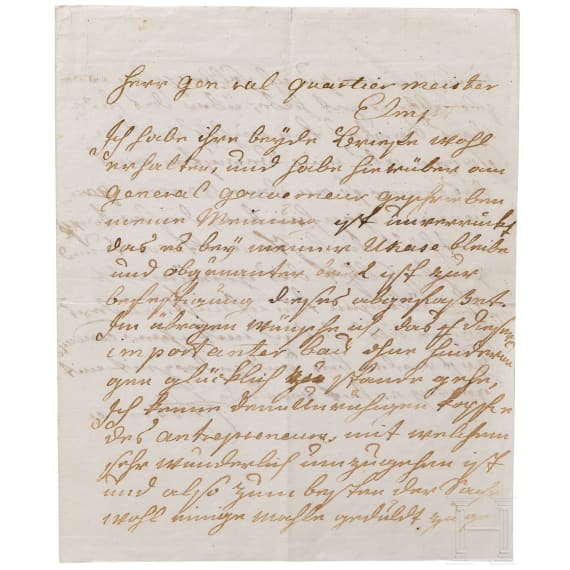 Herr General quartier meister
Elmpt
Ich habe ihre beyde Brieffe wohl
erhalten, und habe hierüber am
General gouverneur geschrieben
meine Meinung ist unverruckt
das es bey meiner Ukase bleibe
und obgenanter ist zur
befestigung dieses abgefasset.
Im übrigen wünsche ich, das dieser
importanter bau ohne hinderun
gen glücklich zu stande gehe,
Ich kenne den Unruhigen kopff
des antrepreneurs, mit welchem
sehr wunderlich umzugehen ist
und also zum besten der Sache
wohl einige mahle geduldt